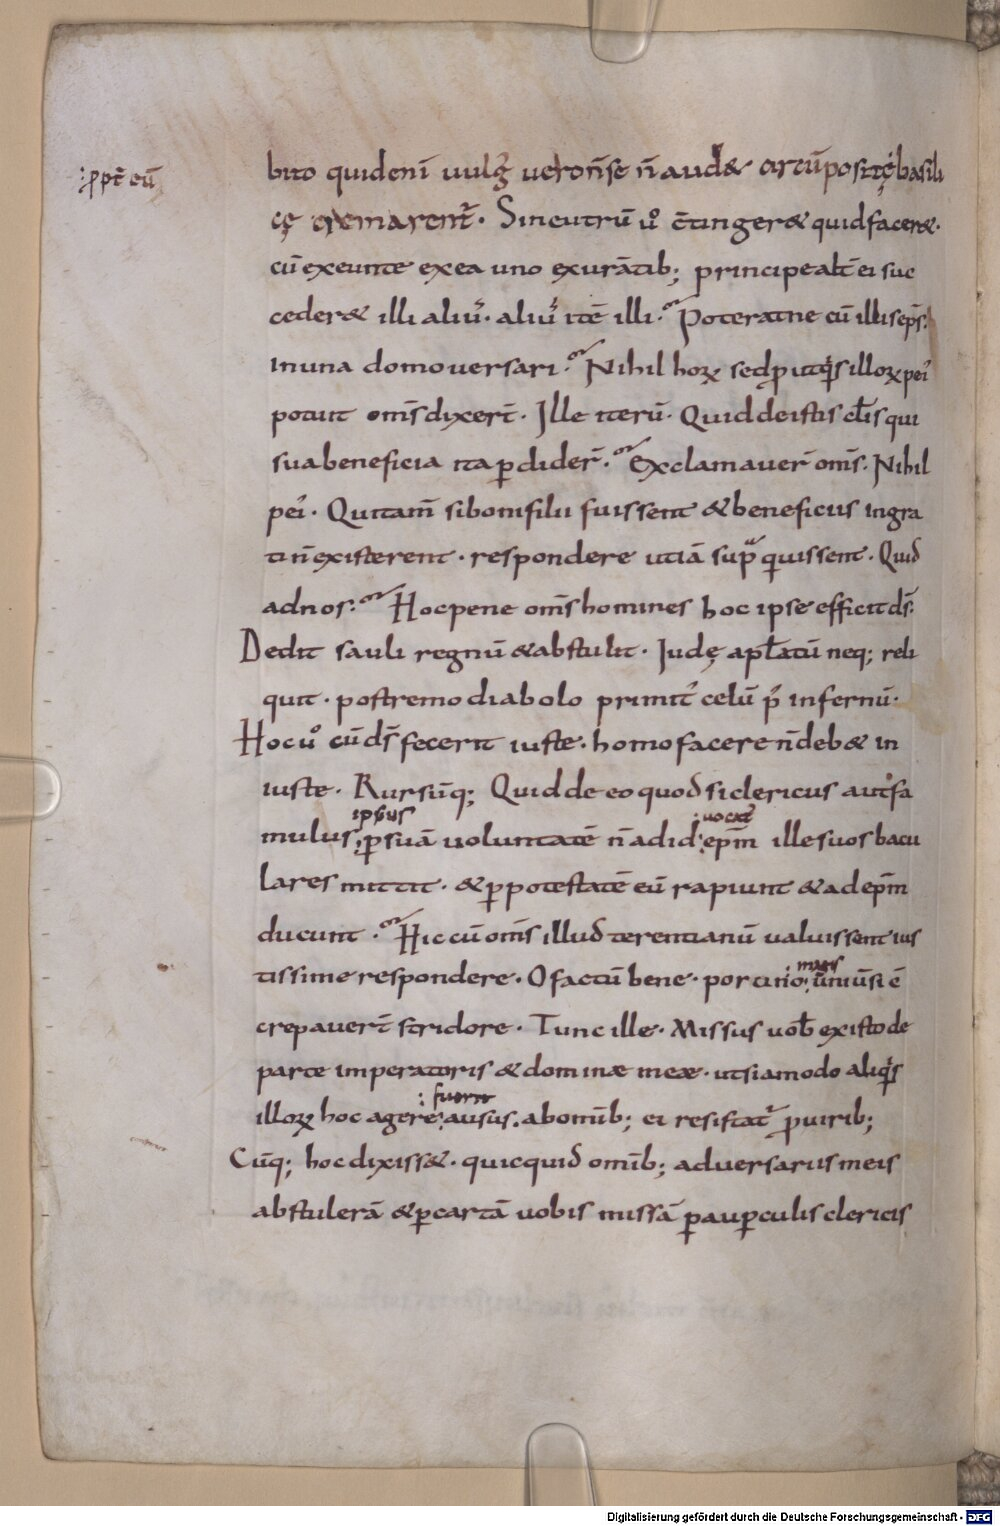 :ꝓpt̄ eū
bito quideni̅ uulg᷒ ueron̄se n̄ aud& circu̅positę basili
cę cremarent᷒. Sin eutru̅ uº c̄tinger& quid facer&.
cu̅ exeunte ex ea uno exura̅tib; principe alt̄ ei suc
ceder& illi aliu᷒. aliu᷒ ite̅ illi. Poteratne cu̅ illis ep̄s
in una domo uersari. Nihil hoꝝ sed ꝓut qͥs illoꝝ pei᷒
potuit om̄s dixer̄. Ille iteru̅. Quid de istis cl̄is qui
sua beneficia ita ꝑdider̄. Exclamauer̄ om̄s. Nihil
pei᷒. Qui tam̄ si boni filii fuissent & beneficiis ingra
ti n̄ existerent. respondere utia̅ supͣ quissent. Quid
ad nos. Hoc pene om̄s homines hoc ipse efficit d̄s.
Dedit sauli regnu̅ & abstulit. Iudę apl̄atu̅ neq; reli
quit. postremo diabolo primit᷒ celu̅ p᷒ infernu̅.
Hoc uº cu̅ d̄s fecerit iuste. homo facere n̄ deb& in
iuste. Rursu̅q; Quid de eo quod si clericus aut fa
ipsius :uocat᷒
mulus; ꝑ sua̅ uolunta̅te̅ n̄ adid; ep̄m ille suos bacu
lares mittit. & ꝑ potestate̅ eu̅ rapiunt & ad ep̄m
ducunt. Hic cu̅ om̄s illud terentianu̅ ualuissent ius
tissime respondere. O factu̅ bene. portino; u̅niu̅si e̅
:magis
crepauer̄ stridore. Tunc ille. Missus uob̄ existo de
parte imperatoris & dominæ meæ. ut si amodo aliqͥs
: fuerit
illoꝝ hoc agere; ausus. ab omīb; ei resistat᷒ ꝓ uirib;
Cu̅q; hoc dixiss&. quicquid omīb; aduersariis meis
abstulera̅ & ꝑ carta̅ uobis missa̅ pauꝑculis clericis
Digitalisierung gefördert durch die Deutsche Forschungsgemeinschaft - DFG